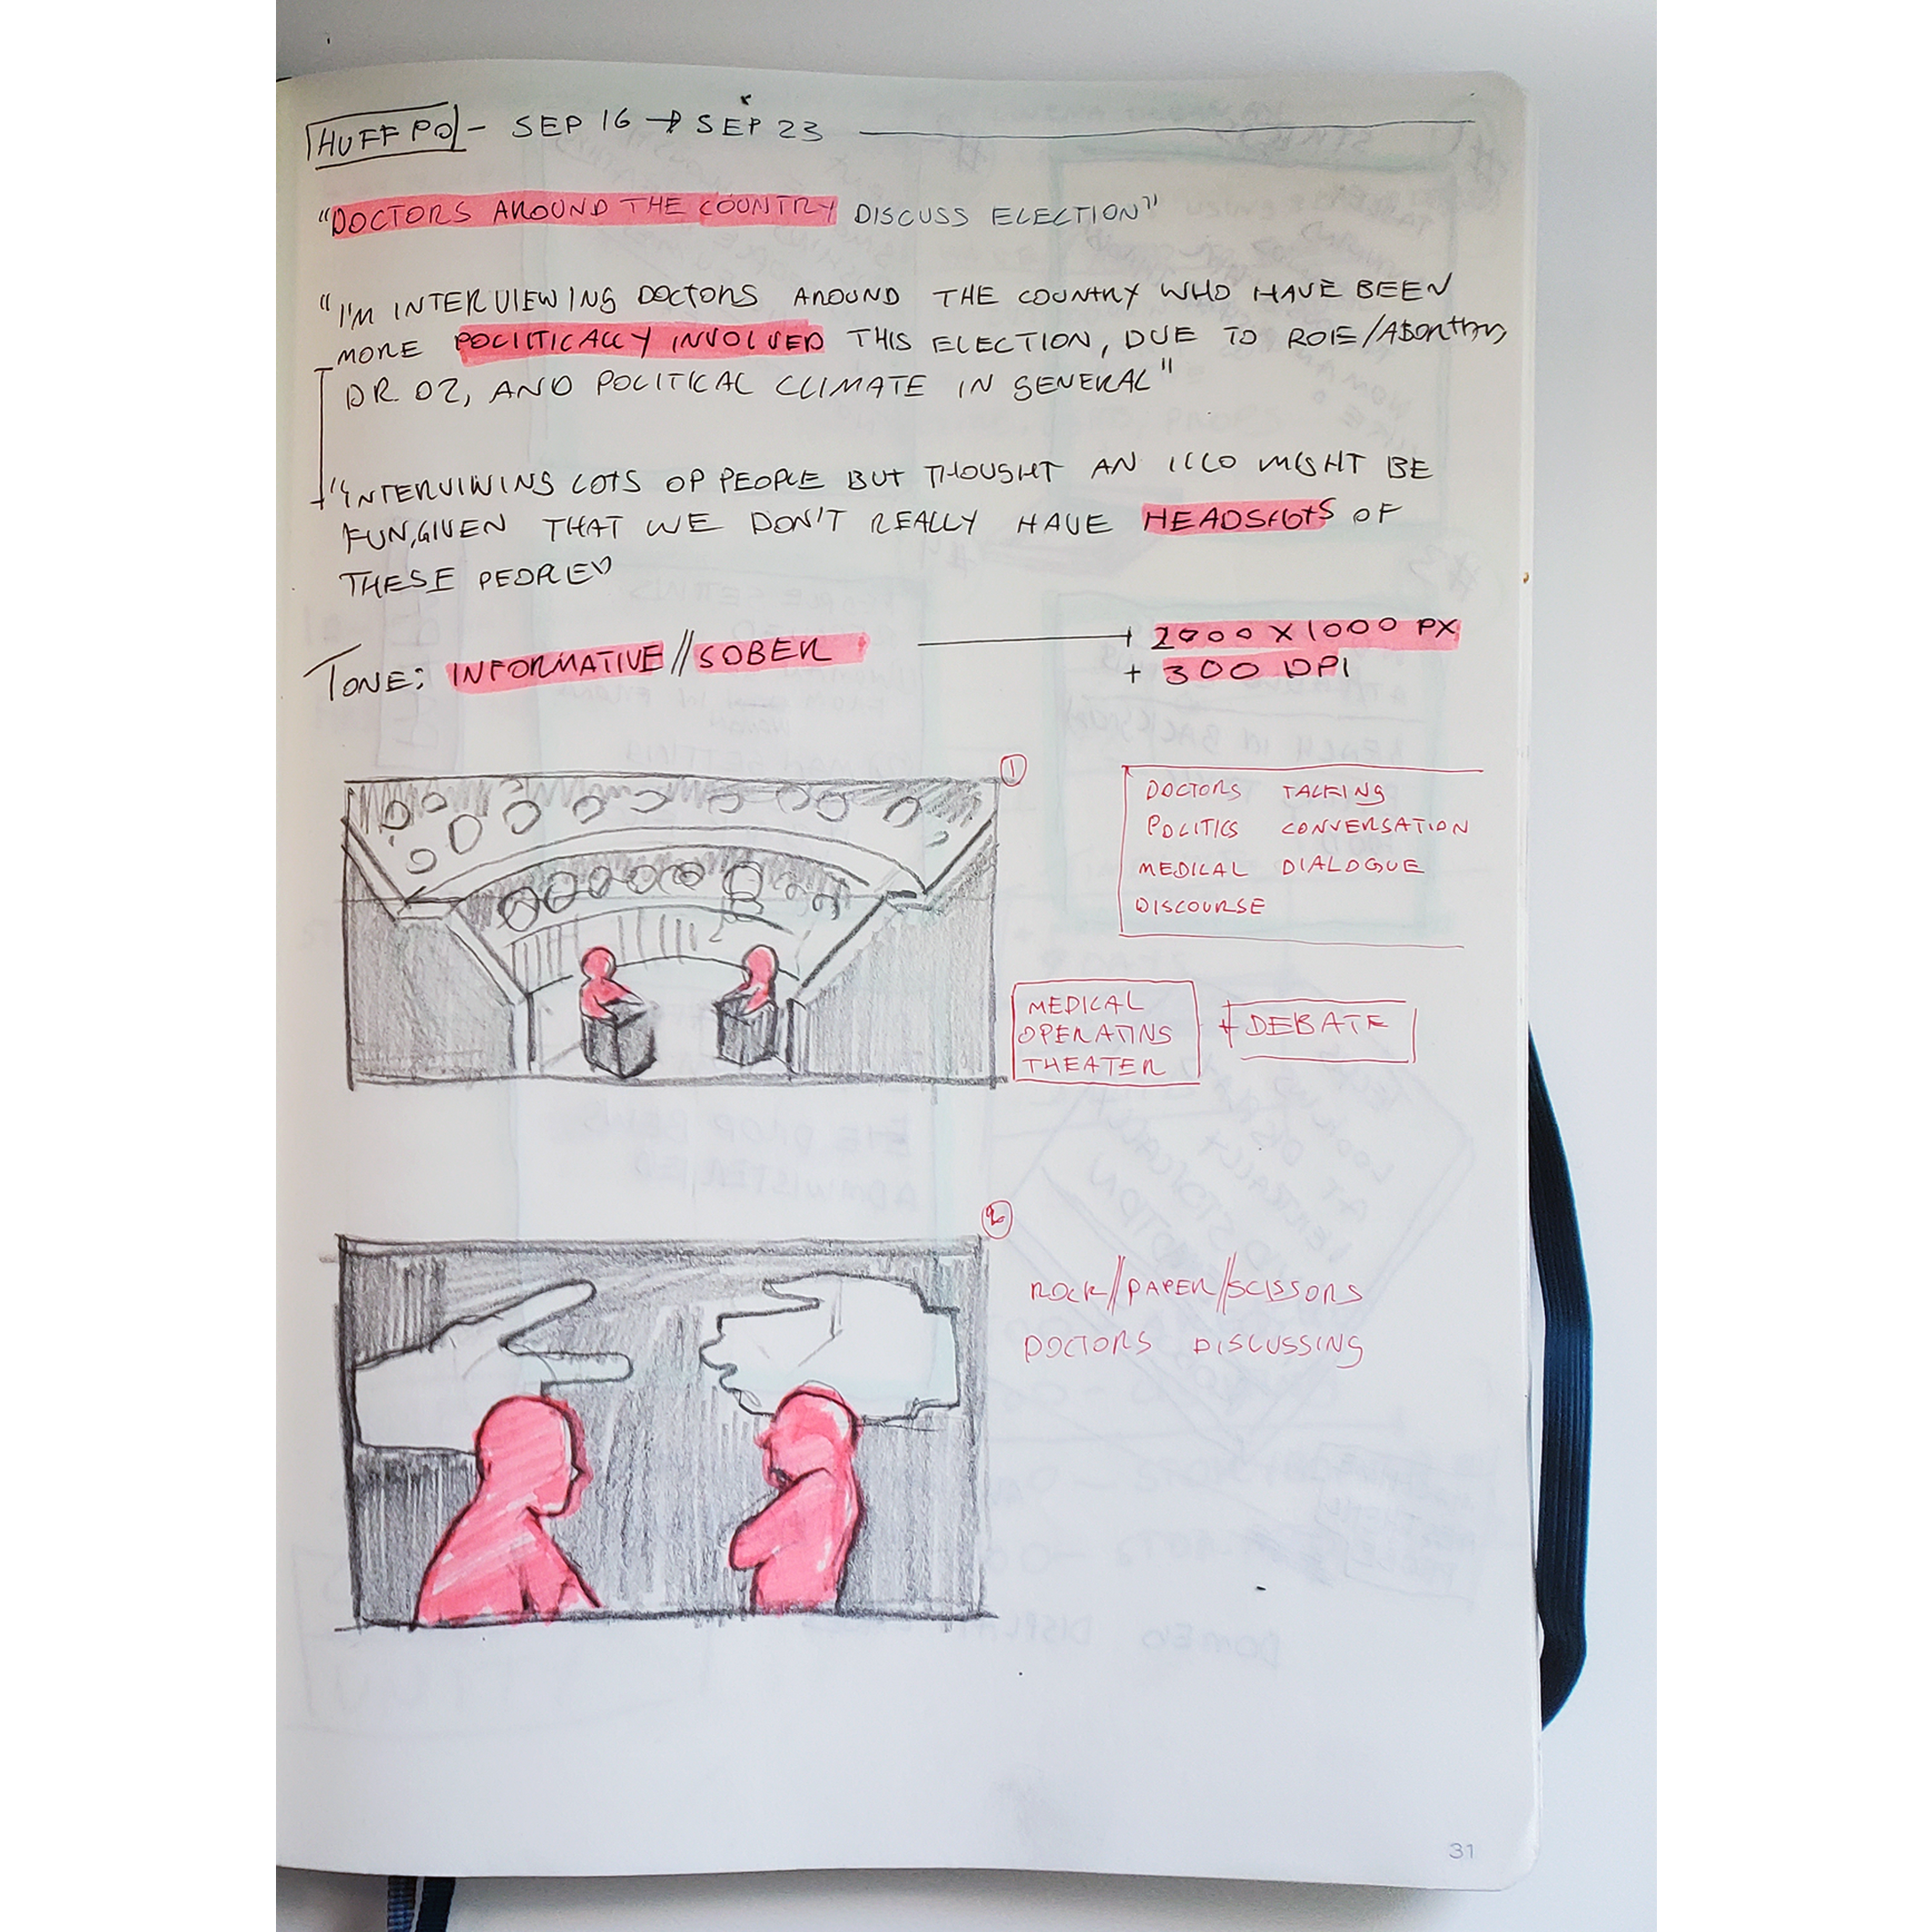 HUFF PO - SEP 16 → SEP 23
"DOCTORS AROUND THE COUNTRY DISCUSS ELECTION"
"I'M INTERVIEWING DOCTORS AROUND THE COUNTRY WHO HAVE BEEN
MORE POLITICALLY INVOLVED THIS ELECTION, DUE TO ROE/ABORTION,
DR. OZ, AND POLITICAL CLIMATE IN GENERAL"
"INTERVIWING LOTS OF PEOPLE BUT THOUGHT AN ILLO MIGHT BE
FUN, GIVEN THAT WE DON'T REALLY HAVE HEADSHOTS OF
THESE PEOPLE"
TONE: INFORMATIVE // SOBER
+ 2000 X 1000 PX
+ 300 DPI
1
DOCTORS TALKING
POLITICS CONVERSATION
MEDICAL DIALOGUE
DISCOURSE
MEDICAL
OPERATING
THEATER
+ DEBATE
2
ROCK//PAPER//SCISSORS
DOCTORS DISCUSSING
31